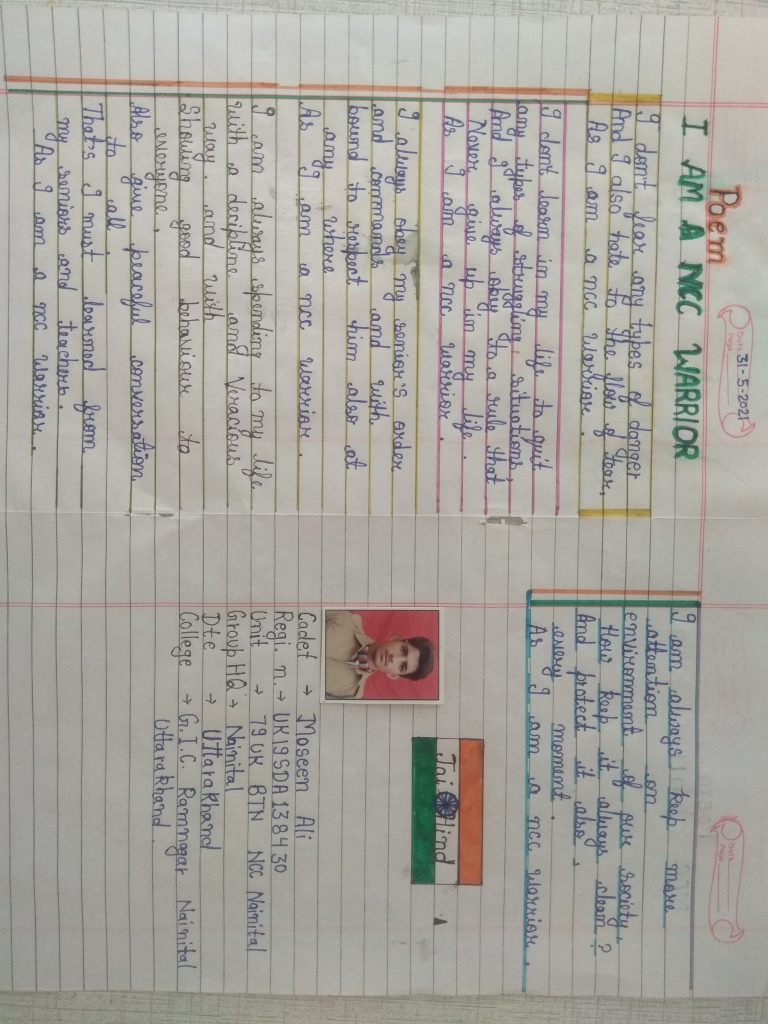 Poem
Date 31-5-2021
Page
I AM A NCC WARRIOR
I don't fear any types of danger
And I also hate to the flow of fear,
As I am a ncc warrior.
I don't learn in my life to quit
any types of struggling situations,
And I always obey to a rule that
Never give up in my life.
As I am a ncc warrior.
I always obey my senior's order
and commands and with
bound to respect him also at
any where
As I am a ncc warrior.
I am always spending to my life
with a decipline and Veracious
way. and with
Showing good behaviour to
everyone.
Also give peacful conversation
to all.
That's I must learned from
my seniors and teachers.
As I am a ncc warrior.
Date
Page
I am always keep more
attention on
environment of our society,
How keep it always clean?
And protect it also,
every moment.
As I am a ncc warrior.
Jai Hind
Cadet → Moseen Ali
Regi. n. → UK19SDA138430
Unit → 79 UK BTN NCC Nainital
Group HQ → Nainital
Dte → Uttarakhand
College → G.I.C. Ramngar Nainital
Uttarakhand.